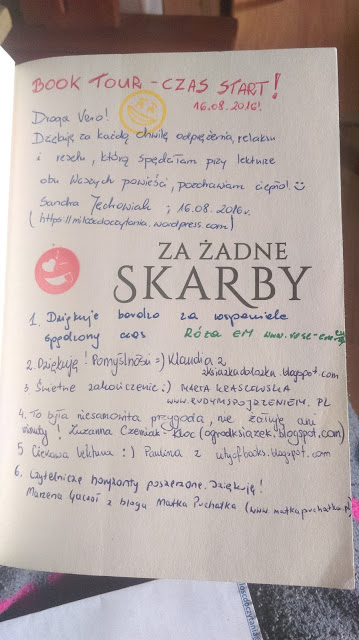 BOOK TOUR - CZAS START!
16.08.2016!
Droga Vero!
Dziękuję za każdą chwilę odprężenia, relaksu
i resetu, którą spędziłam przy lekturze
obu Waszych powieści, pozdrawiam ciepło! :)
Sandra Jechowiak ; 16.08.2016r.
(https://miloscdoczytania.wordpress.com)
ZA ŻADNE
SKARBY
1. Dziękuję bardzo za wspaniale
spędzony czas Róża EM
2. Dziękuję! Pomyślności =) Klaudia z
zksiazkadolozka.blogspot.com
3 Świetne zakończenie :) MARTA KRASLOWSKA
WWW.RUDYMSPOJRZENIEM.PL
4. To była niesamowita przygoda, nie żałuję ani
minuty! Zuzanna Czerniak-Kloc (ogrodksiazek.blogspot.com)
5 Ciekawa lektura :) Paulina z blogspot.com
6. Czytelnicze horyzonty poszerzone. Dziękuję!
Marzena z bloga Matka Puchatka (www.matkapuchatka.pl)